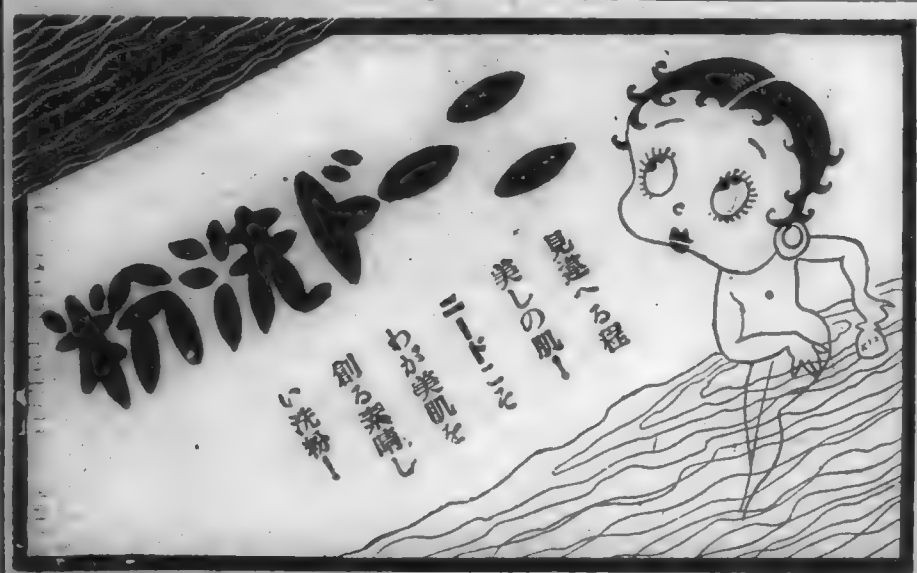 ニード洗粉
見違へる程
美しの肌!
ニードこそ
わが美肌を
創る素晴し
い洗粉!